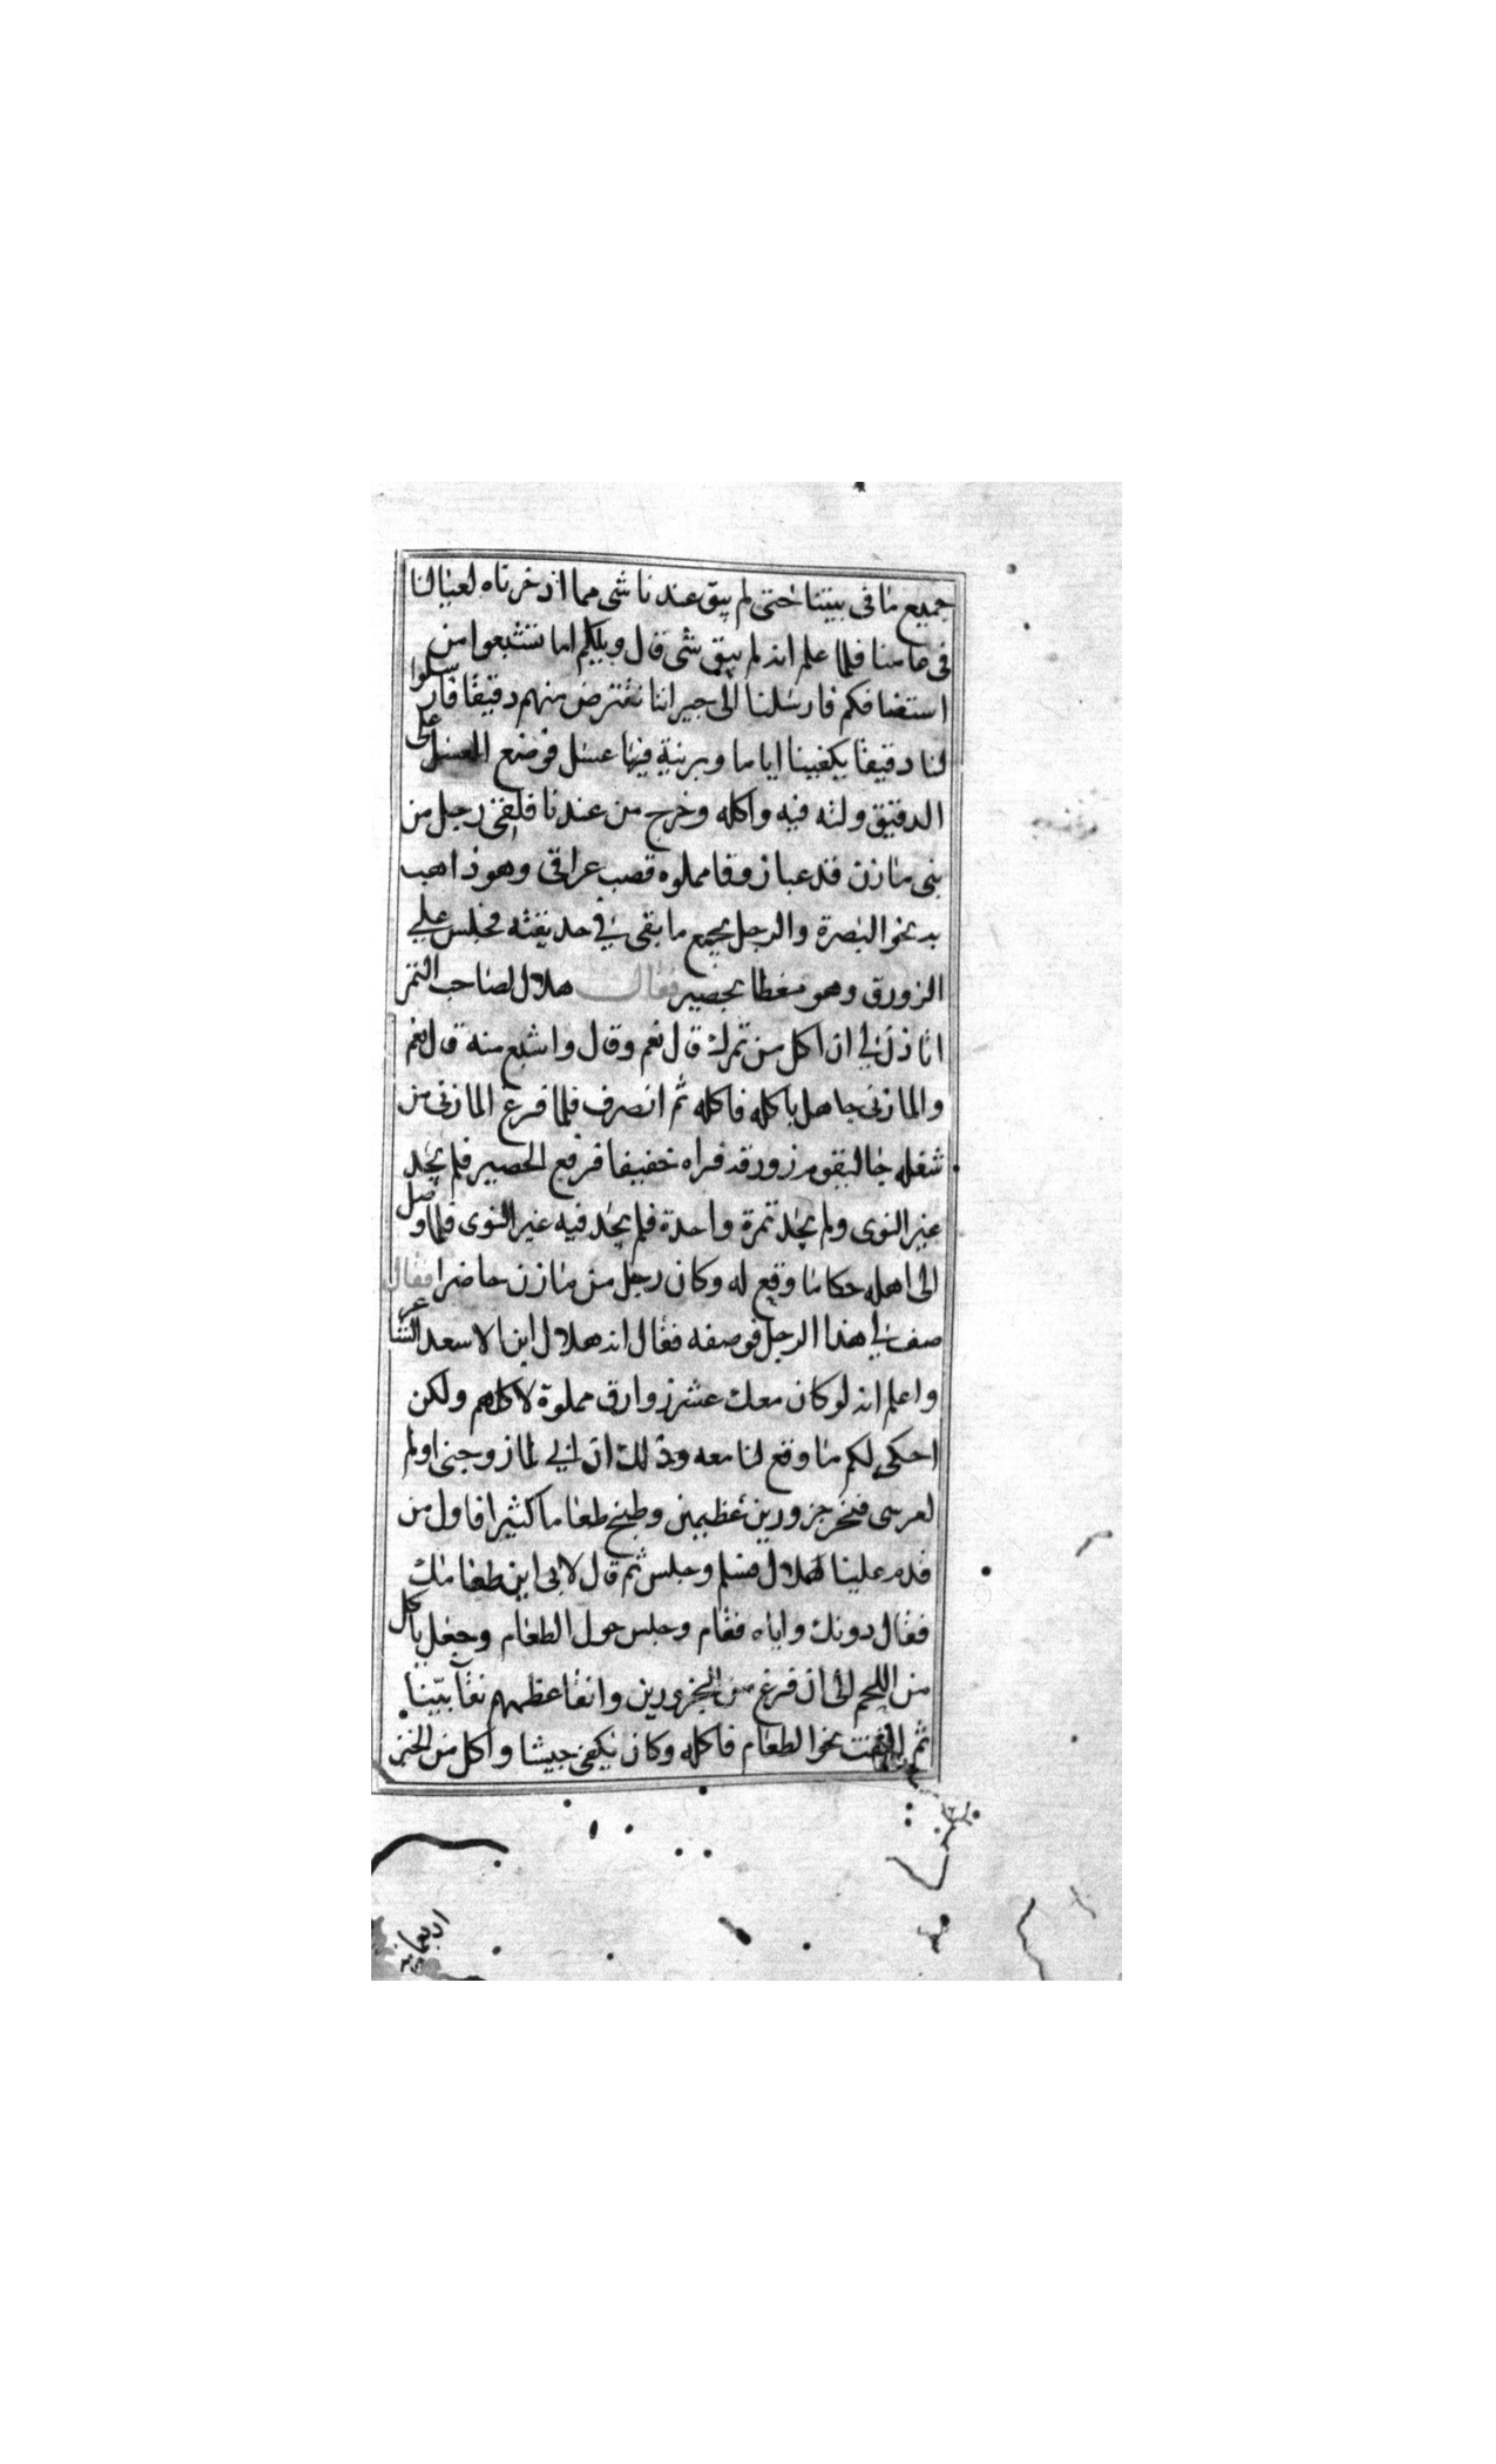 جميع ما في بيتنا حتى لم يبق عندنا شى مما ادخرناه لعيالنا
في عامنا فلما علم انه لم يبق شى قال ويلكم اما تشبعوا من
استضافكم فارسلنا الى جيراننا نقترض منهم دقيقا فارسلوا
لنا دقيقا يكفينا اياما وبرنية فيها عسل فوضع العسل على
الدقيق ولته فيه واكله وخرج من عندنا فلقى رجل من
بنى مازن قد عبا زوقا مملوه قصب عراقى وهو ذاهب
به نحو البصرة والرجل يجمع ما بقى في حديقته فجلس على
الزورق وهو مغطا بحصير فقال هلال لصاحب التمر
اتاذن لي ان اكل من تمرك قال نعم وقال واشبع منه قال نعم
والمازنى جاهل باكله فاكله ثم انصرف فلما فرغ المازنى من
شغله جا ليقوم زورقه فراه خفيفا فرفع الحصير فلم يجد
غير النوى ولم يجد تمرة واحدة فلم يجد فيه غير النوى فلما وصل
الى اهله حكا ما وقع له وكان رجل من مازن حاضرا فقال
صف لي هذا الرجل فوصفه فقال انه هلال ابن الاسعد الشاعر
واعلم انه لو كان معك عشر زوارق مملوة لاكلهم ولكن
احكى لكم ما وقع لنا معه وذلك ان ابي لما زوجنى اولم
لعرسى فنحر جزورين عظيمين وطبخ طعاما كثيرا فاول من
قدم علينا هلال فسلم وجلس ثم قال لابى اين طعامك
فقال دونك واياه فقام وجلس حول الطعام وجعل ياكل
من اللحم الى ان فرغ من الجزورين وانقا عظمهم نقآ بيّنا
ثم التفت نحو الطعام فاكله وكان يكفى جيشا واكل من الخبز